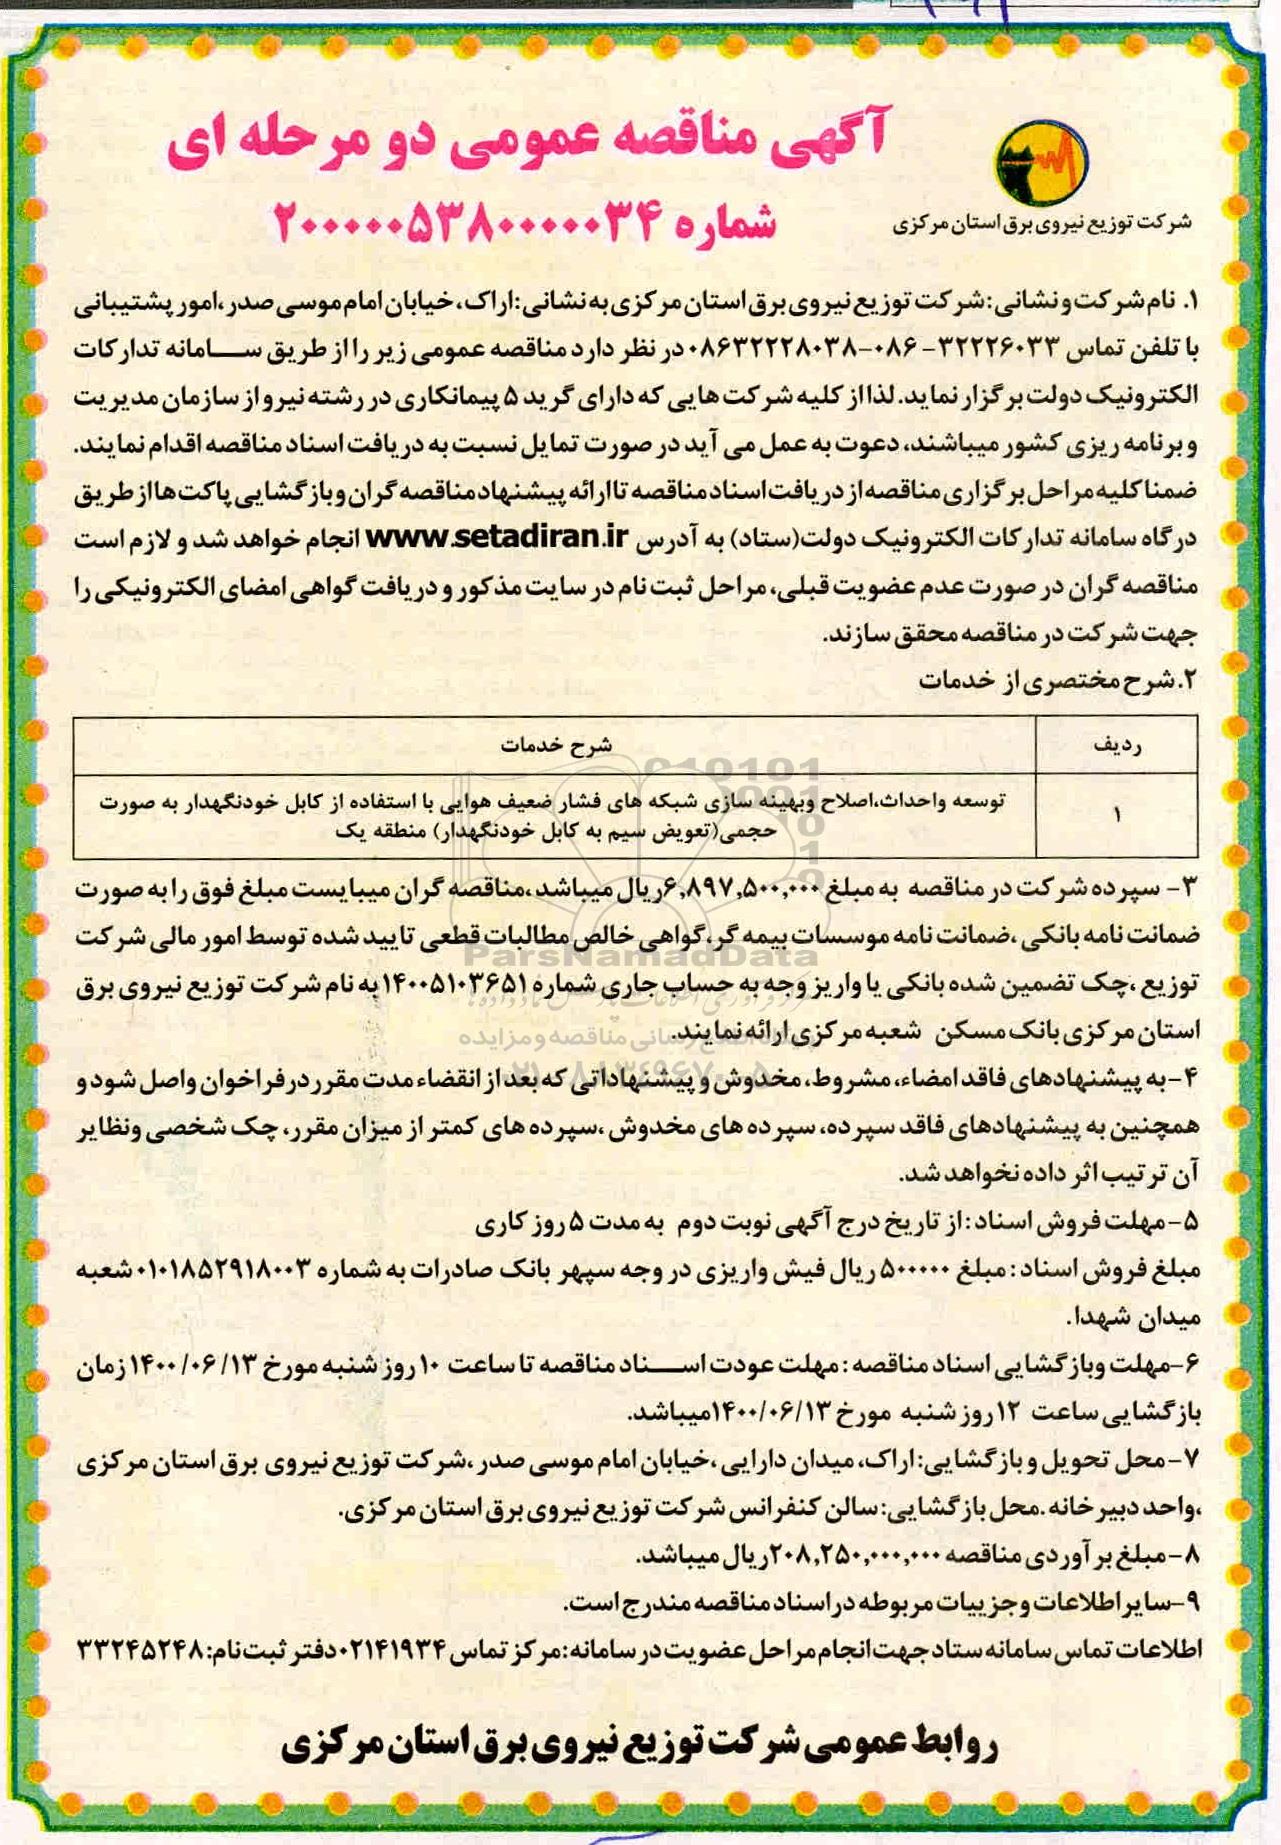 آگهی مناقصه عمومی دو مرحله ای
شماره ۲۰۰۰۰۰۵۳۸۰۰۰۰۰۳۴
شرکت توزیع نیروی برق استان مرکزی
۱. نام شرکت و نشانی: شرکت توزیع نیروی برق استان مرکزی به نشانی: اراک، خیابان امام موسی صدر، امور پشتیبانی
با تلفن تماس ۳۲۲۲۶۰۳۳- ۰۸۶-۰۸۶۳۲۲۲۸۰۳۸ در نظر دارد مناقصه عمومی زیر را از طریق سامانه تدارکات
الکترونیک دولت برگزار نماید. لذا از کلیه شرکت هایی که دارای گرید ۵ پیمانکاری در رشته نیرو از سازمان مدیریت
و برنامه ریزی کشور میباشند، دعوت به عمل می آید در صورت تمایل نسبت به دریافت اسناد مناقصه اقدام نمایند.
ضمنا کلیه مراحل برگزاری مناقصه از دریافت اسناد مناقصه تا ارائه پیشنهاد مناقصه گران و بازگشایی پاکت ها از طریق
درگاه سامانه تدارکات الکترونیک دولت(ستاد) به آدرس www.setadiran.ir انجام خواهد شد و لازم است
مناقصه گران در صورت عدم عضویت قبلی، مراحل ثبت نام در سایت مذکور و دریافت گواهی امضای الکترونیکی را
جهت شرکت در مناقصه محقق سازند.
۲. شرح مختصری از خدمات
ردیف	شرح خدمات
۱	توسعه واحداث،اصلاح وبهینه سازی شبکه های فشار ضعیف هوایی با استفاده از کابل خودنگهدار به صورت
حجمی(تعویض سیم به کابل خودنگهدار) منطقه یک
۳- سپرده شرکت در مناقصه به مبلغ ۶,۸۹۷,۵۰۰,۰۰۰ریال میباشد، مناقصه گران میبایست مبلغ فوق را به صورت
ضمانت نامه بانکی، ضمانت نامه موسسات بیمه گر، گواهی خالص مطالبات قطعی تایید شده توسط امور مالی شرکت
توزیع، چک تضمین شده بانکی یا واریز وجه به حساب جاری شماره ۱۴۰۰۵۱۰۳۶۵۱ به نام شرکت توزیع نیروی برق
استان مرکزی بانک مسکن شعبه مرکزی ارائه نمایند.
۴- به پیشنهادهای فاقد امضاء، مشروط، مخدوش و پیشنهاداتی که بعد از انقضاء مدت مقرر در فراخوان واصل شود و
همچنین به پیشنهادهای فاقد سپرده، سپرده های مخدوش، سپرده های کمتر از میزان مقرر، چک شخصی ونظایر
آن ترتیب اثر داده نخواهد شد.
۵- مهلت فروش اسناد: از تاریخ درج آگهی نوبت دوم به مدت ۵ روز کاری
مبلغ فروش اسناد: مبلغ ۵۰۰۰۰۰ ریال فیش واریزی در وجه سپهر بانک صادرات به شماره ۰۱۰۱۸۵۲۹۱۸۰۰۳ شعبه
میدان شهدا.
۶-مهلت وبازگشایی اسناد مناقصه: مهلت عودت اسناد مناقصه تا ساعت ۱۰ روز شنبه مورخ ۱۴۰۰/۰۶/۱۳ زمان
بازگشایی ساعت ۱۲ روز شنبه مورخ ۱۴۰۰/۰۶/۱۳میباشد.
۷- محل تحویل و بازگشایی: اراک، میدان دارایی، خیابان امام موسی صدر، شرکت توزیع نیروی برق استان مرکزی
،واحد دبیرخانه. محل بازگشایی: سالن کنفرانس شرکت توزیع نیروی برق استان مرکزی.
۸- مبلغ برآوردی مناقصه ۲۰۸,۲۵۰,۰۰۰,۰۰۰ریال میباشد.
۹-سایر اطلاعات و جزییات مربوطه در اسناد مناقصه مندرج است.
اطلاعات تماس سامانه ستاد جهت انجام مراحل عضویت در سامانه: مرکز تماس ۰۲۱۴۱۹۳۴ دفتر ثبت نام: ۳۳۲۴۵۲۴۸
روابط عمومی شرکت توزیع نیروی برق استان مرکزی
ParsNamadData